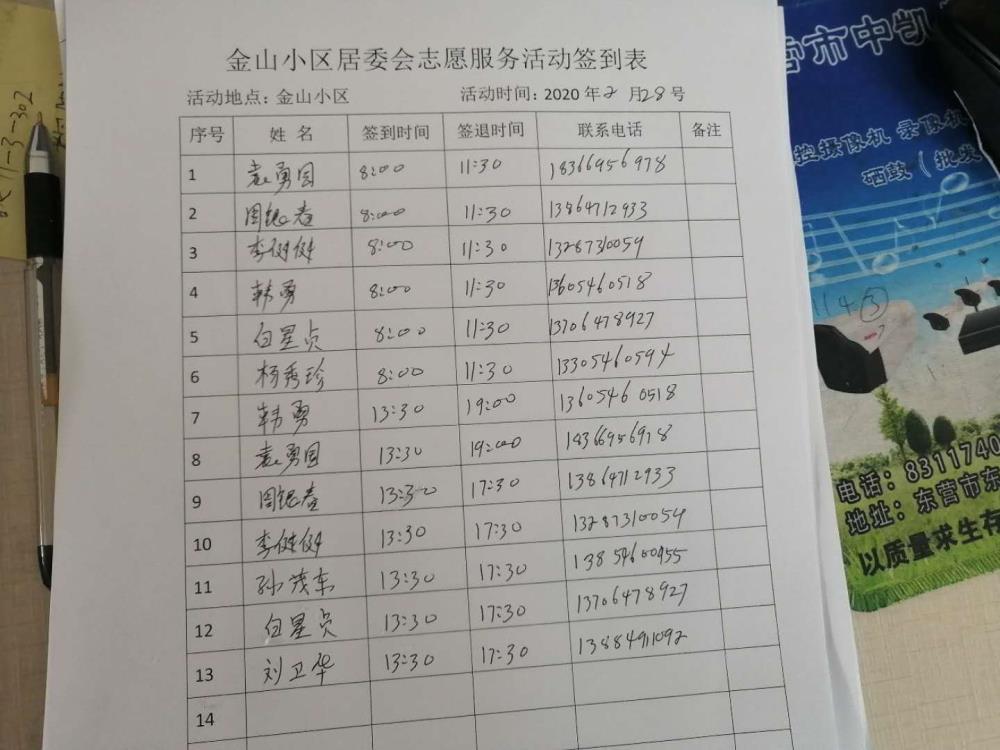 金山小区居委会志愿服务活动签到表
活动地点：金山小区 活动时间：2020年2月28号
序号 姓名 签到时间 签退时间 联系电话 备注
1 袁勇国 8:00 11:30 18366956978
2 周银春 8:00 11:30 13864712933
3 李树树 8:00 11:30 13287310059
4 韩勇 8:00 11:30 13605460518
5 白星贞 8:00 11:30 13706478927
6 杨秀珍 8:00 11:30 13305460594
7 韩勇 13:30 19:00 13605460518
8 袁勇国 13:30 19:00 18366956978
9 周银春 13:30 17:30 13864712933
10 13:30 17:30 13287310059
11 孙茂东 13:30 17:30 13854600955
12 白星贞 13:30 17:30 13706478927
13 刘卫华 13:30 17:30 13884911092
14
11-3-302
营市中凯
控摄像机 录像机
硒鼓（批发
114③
电话：8311740
地址：东营市东
以质量求生存